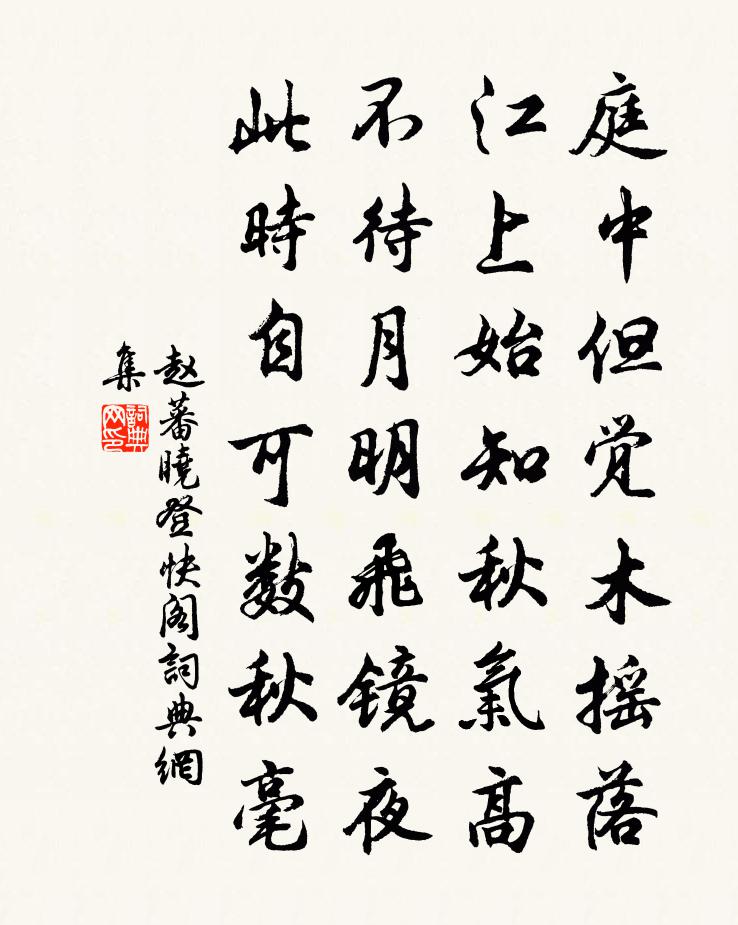 庭中但觉木摇落
江上始知秋氣高
不待月明飛镜夜
此時自可数秋毫
赵蕃曉登快阁詞典網
集
詞典
网印